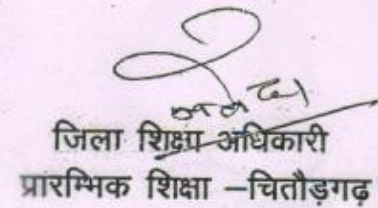 जिला शिक्षा अधिकारी
प्रारम्भिक शिक्षा –चितौड़गढ़